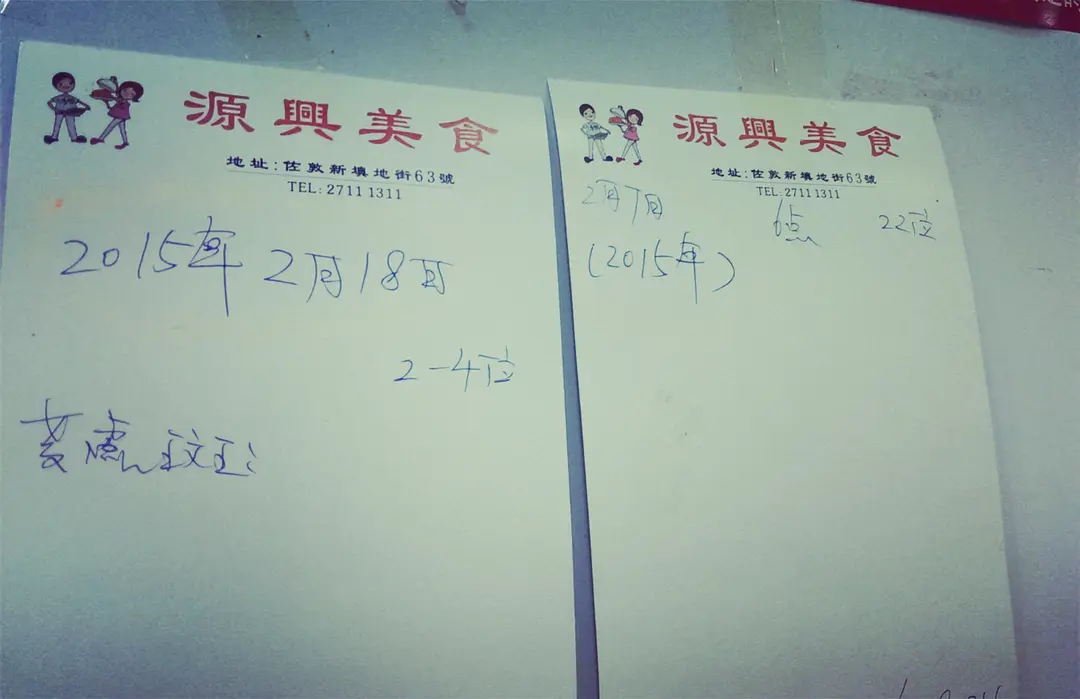 源興美食
地址:佐敦新填地街63號
TEL: 2711 1311
2015年 2月18日
2-4位
源興美食
地址:佐敦新填地街63號
TEL: 2711 1311
2月7日 6点 22位
(2015年)